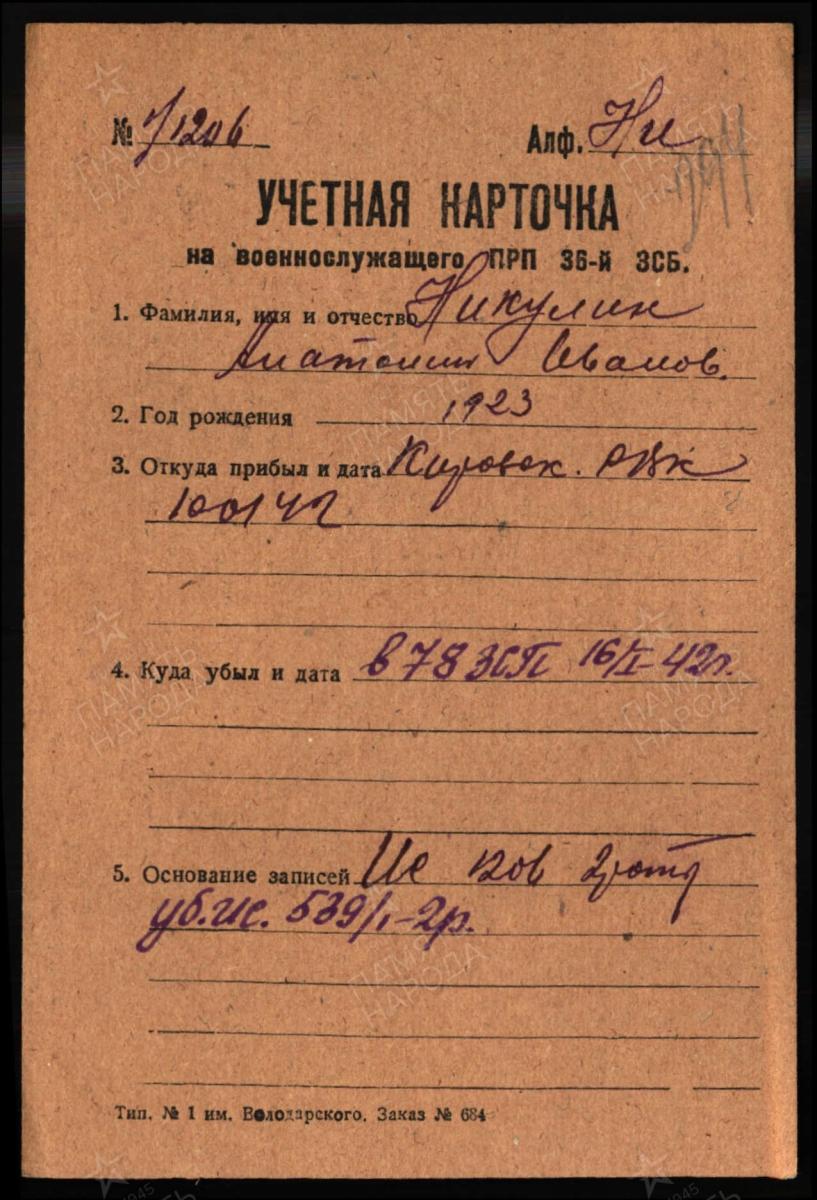 № 7/1206 Алф. Ни
УЧЕТНАЯ КАРТОЧКА
на военнослужащего ПРП 36-й ЗСБ.
1. Фамилия, имя и отчество Никулин
Анатолий Иванов.
2. Год рождения 1923
3. Откуда прибыл и дата Кировск. РВК
4. Куда убыл и дата в 78 ЗСП 16/I-42г.
5. Основание записей Ис 1206 2 роту
уб.ис. 539/1-2р.
Тип. № 1 им. Володарского. Заказ № 684
ПАМЯТЬ
НАРОДА